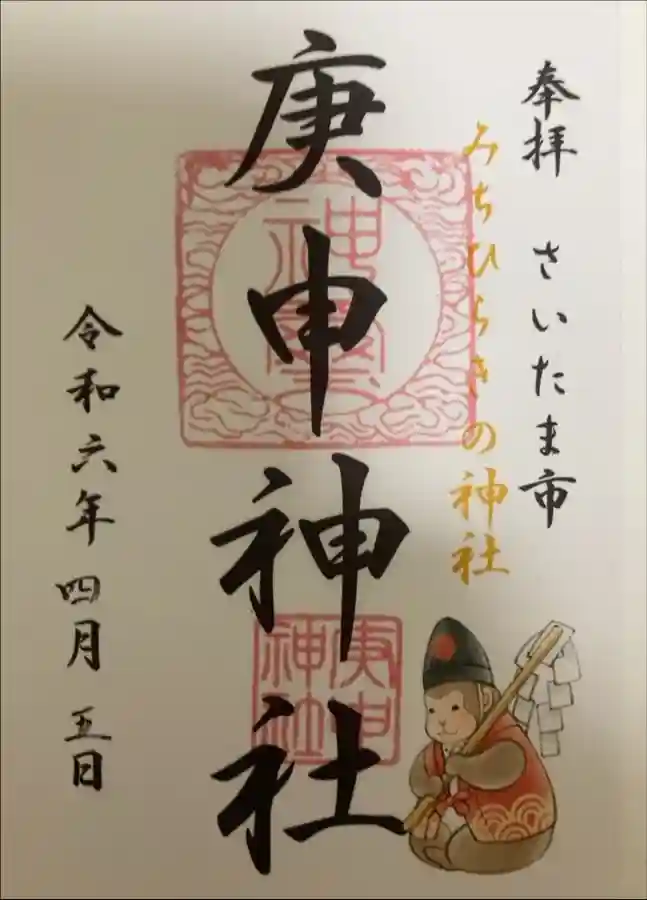 奉拝 さいたま市
みちひらきの神社
庚申神社
庚申神社
令和六年 四月 五日